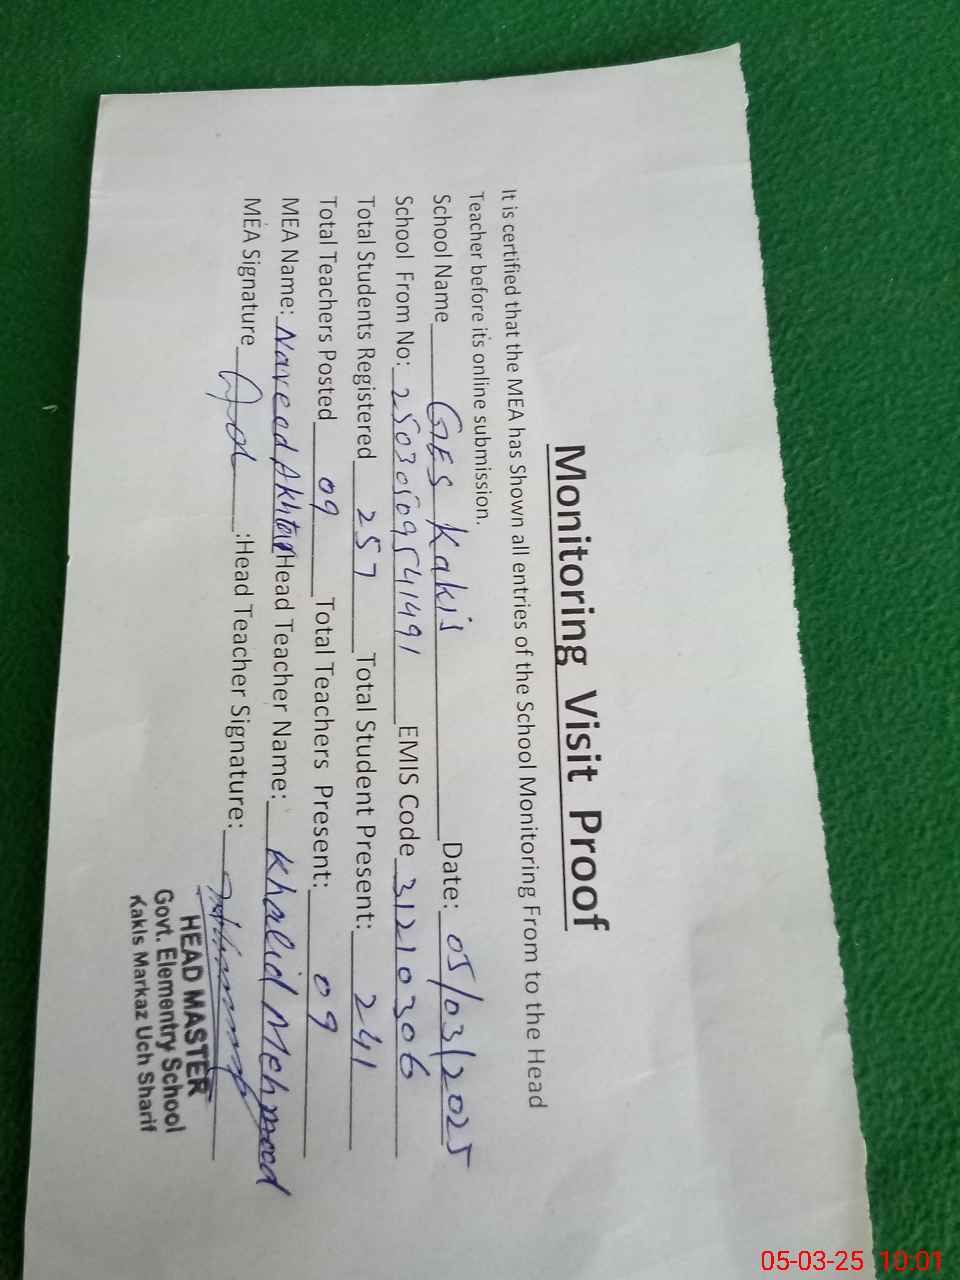 Monitoring Visit Proof
It is certified that the MEA has Shown all entries of the School Monitoring From to the Head
Teacher before it's online submission.
School Name GES Kakis Date: 05/03/2025
School From No: 25030509541491 EMIS Code 31210306
Total Students Registered 257 Total Student Present: 241
Total Teachers Posted 09 Total Teachers Present: 09
MEA Name: Naveed Akhtar Head Teacher Name: Khalid Mehmood
MEA Signature :Head Teacher Signature:
HEAD MASTER
Govt. Elementry School
Kakis Markaz Uch Sharif
05-03-25 10:01